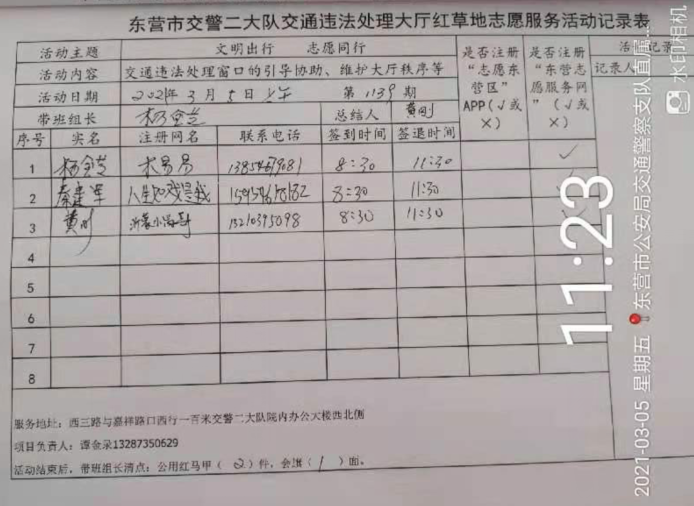 东营市交警二大队交通违法处理大厅红草地志愿服务活动记录表
活动主题 文明出行 志愿同行
活动内容 交通违法处理窗口的引导协助、维护大厅秩序等
活动日期 2021年3月5日上午 第1139期
带班组长 总结人 黄刚
是否注册“志愿东营区”APP（√或×）
是否注册“东营志愿服务网”（√或×）
记录人
序号 实名 注册网名 联系电话 签到时间 签退时间
1 木易易 8:30 11:30 √
2 秦建军 8:30 11:30
3 黄刚 13210395098 8:30 11:30
4
5
6
7
8
服务地址：西三路与嘉祥路口西行一百米交警二大队院内办公大楼西北侧
项目负责人：谭金录13287350629
活动结束后，带班组长清点：公用红马甲（2）件，会旗（1）面。
11:23
2021-03-05 星期五 东营市公安局交通警察支队直属...
水印相机